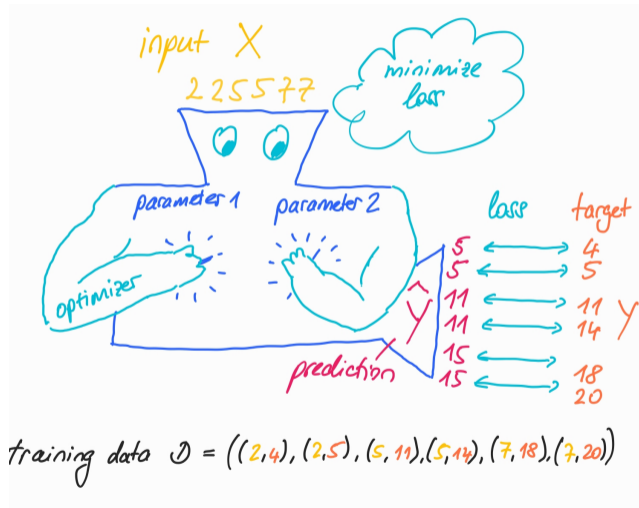 input X
225577
minimize
loss
parameter 1 parameter 2
optimizer
loss target
5 4
5 5
11 11
11 14
15 18
15 20
Ŷ Y
prediction
training data D = ((2,4),(2,5),(5,11),(5,14),(7,18),(7,20))